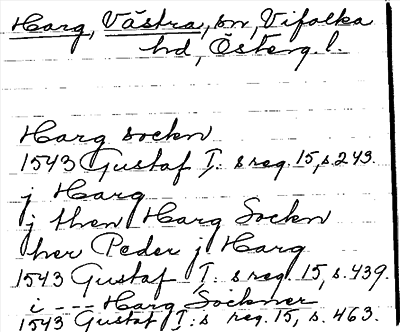 Harg, Västra, sn, Vifolka
hd, Österg. l.
Harg sockn
1543 Gustaf I: s reg. 15, s. 243.
j Harg
j then Harg Sockn
her Peder j Harg
1543 Gustaf I: s reg. 15, s. 439.
i --- Harg Sockner
1543 Gustaf I: s reg. 15, s. 463.